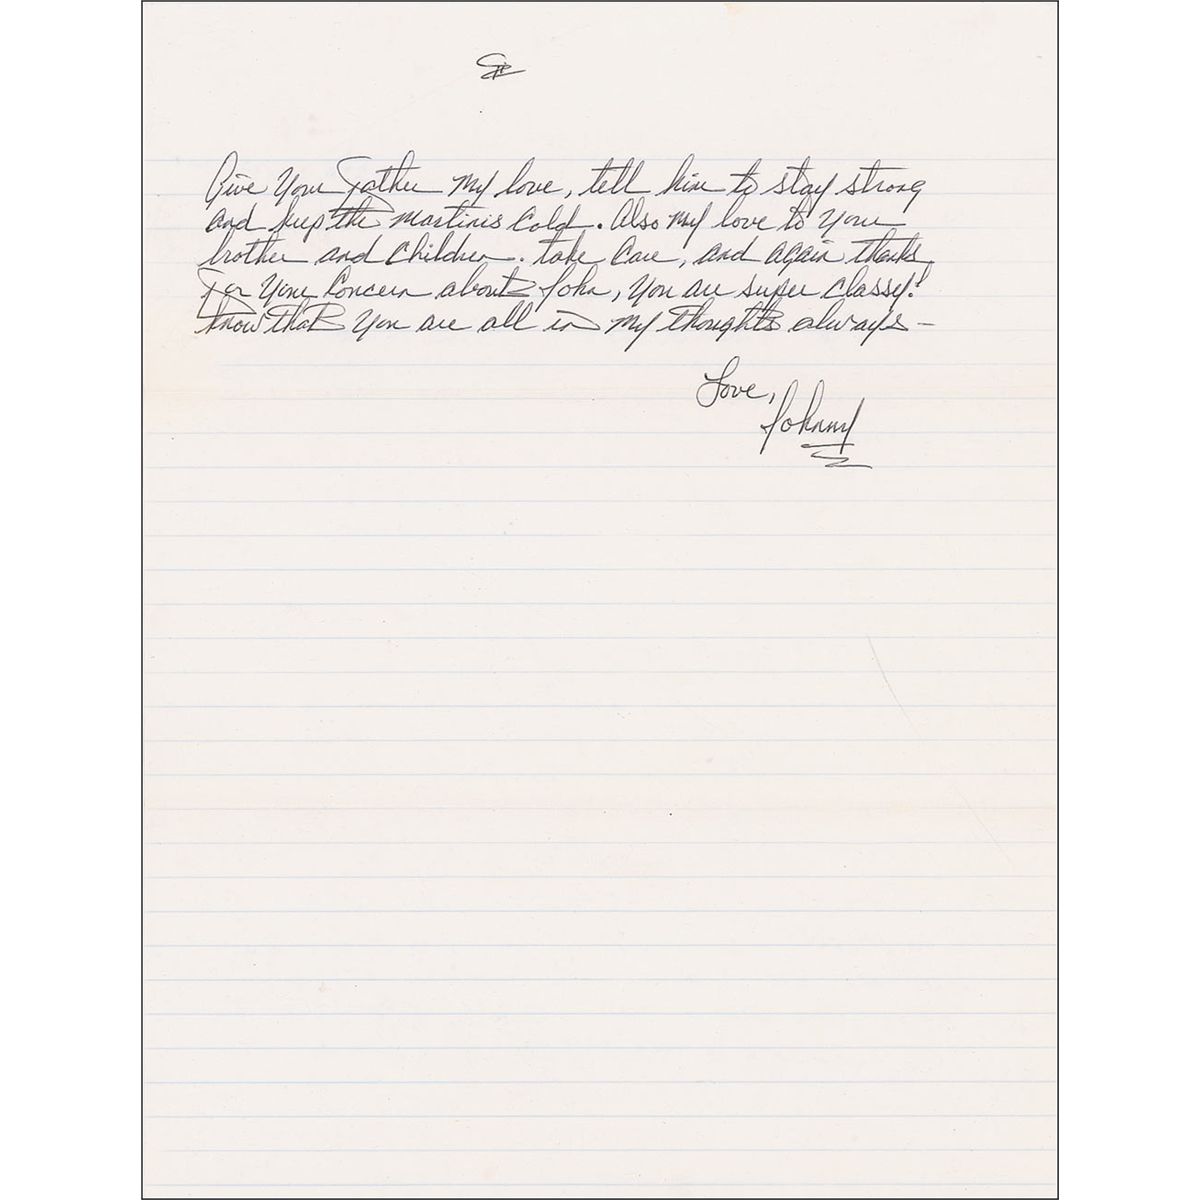 Give Your Father My love, tell him to stay strong
and keep the Martinis Cold. Also My love to your
brother and Children. take Care, and again thanks
For Your Concern about John, You are super classy!
Know that You are all in My thoughts always –
Love,
Johnny